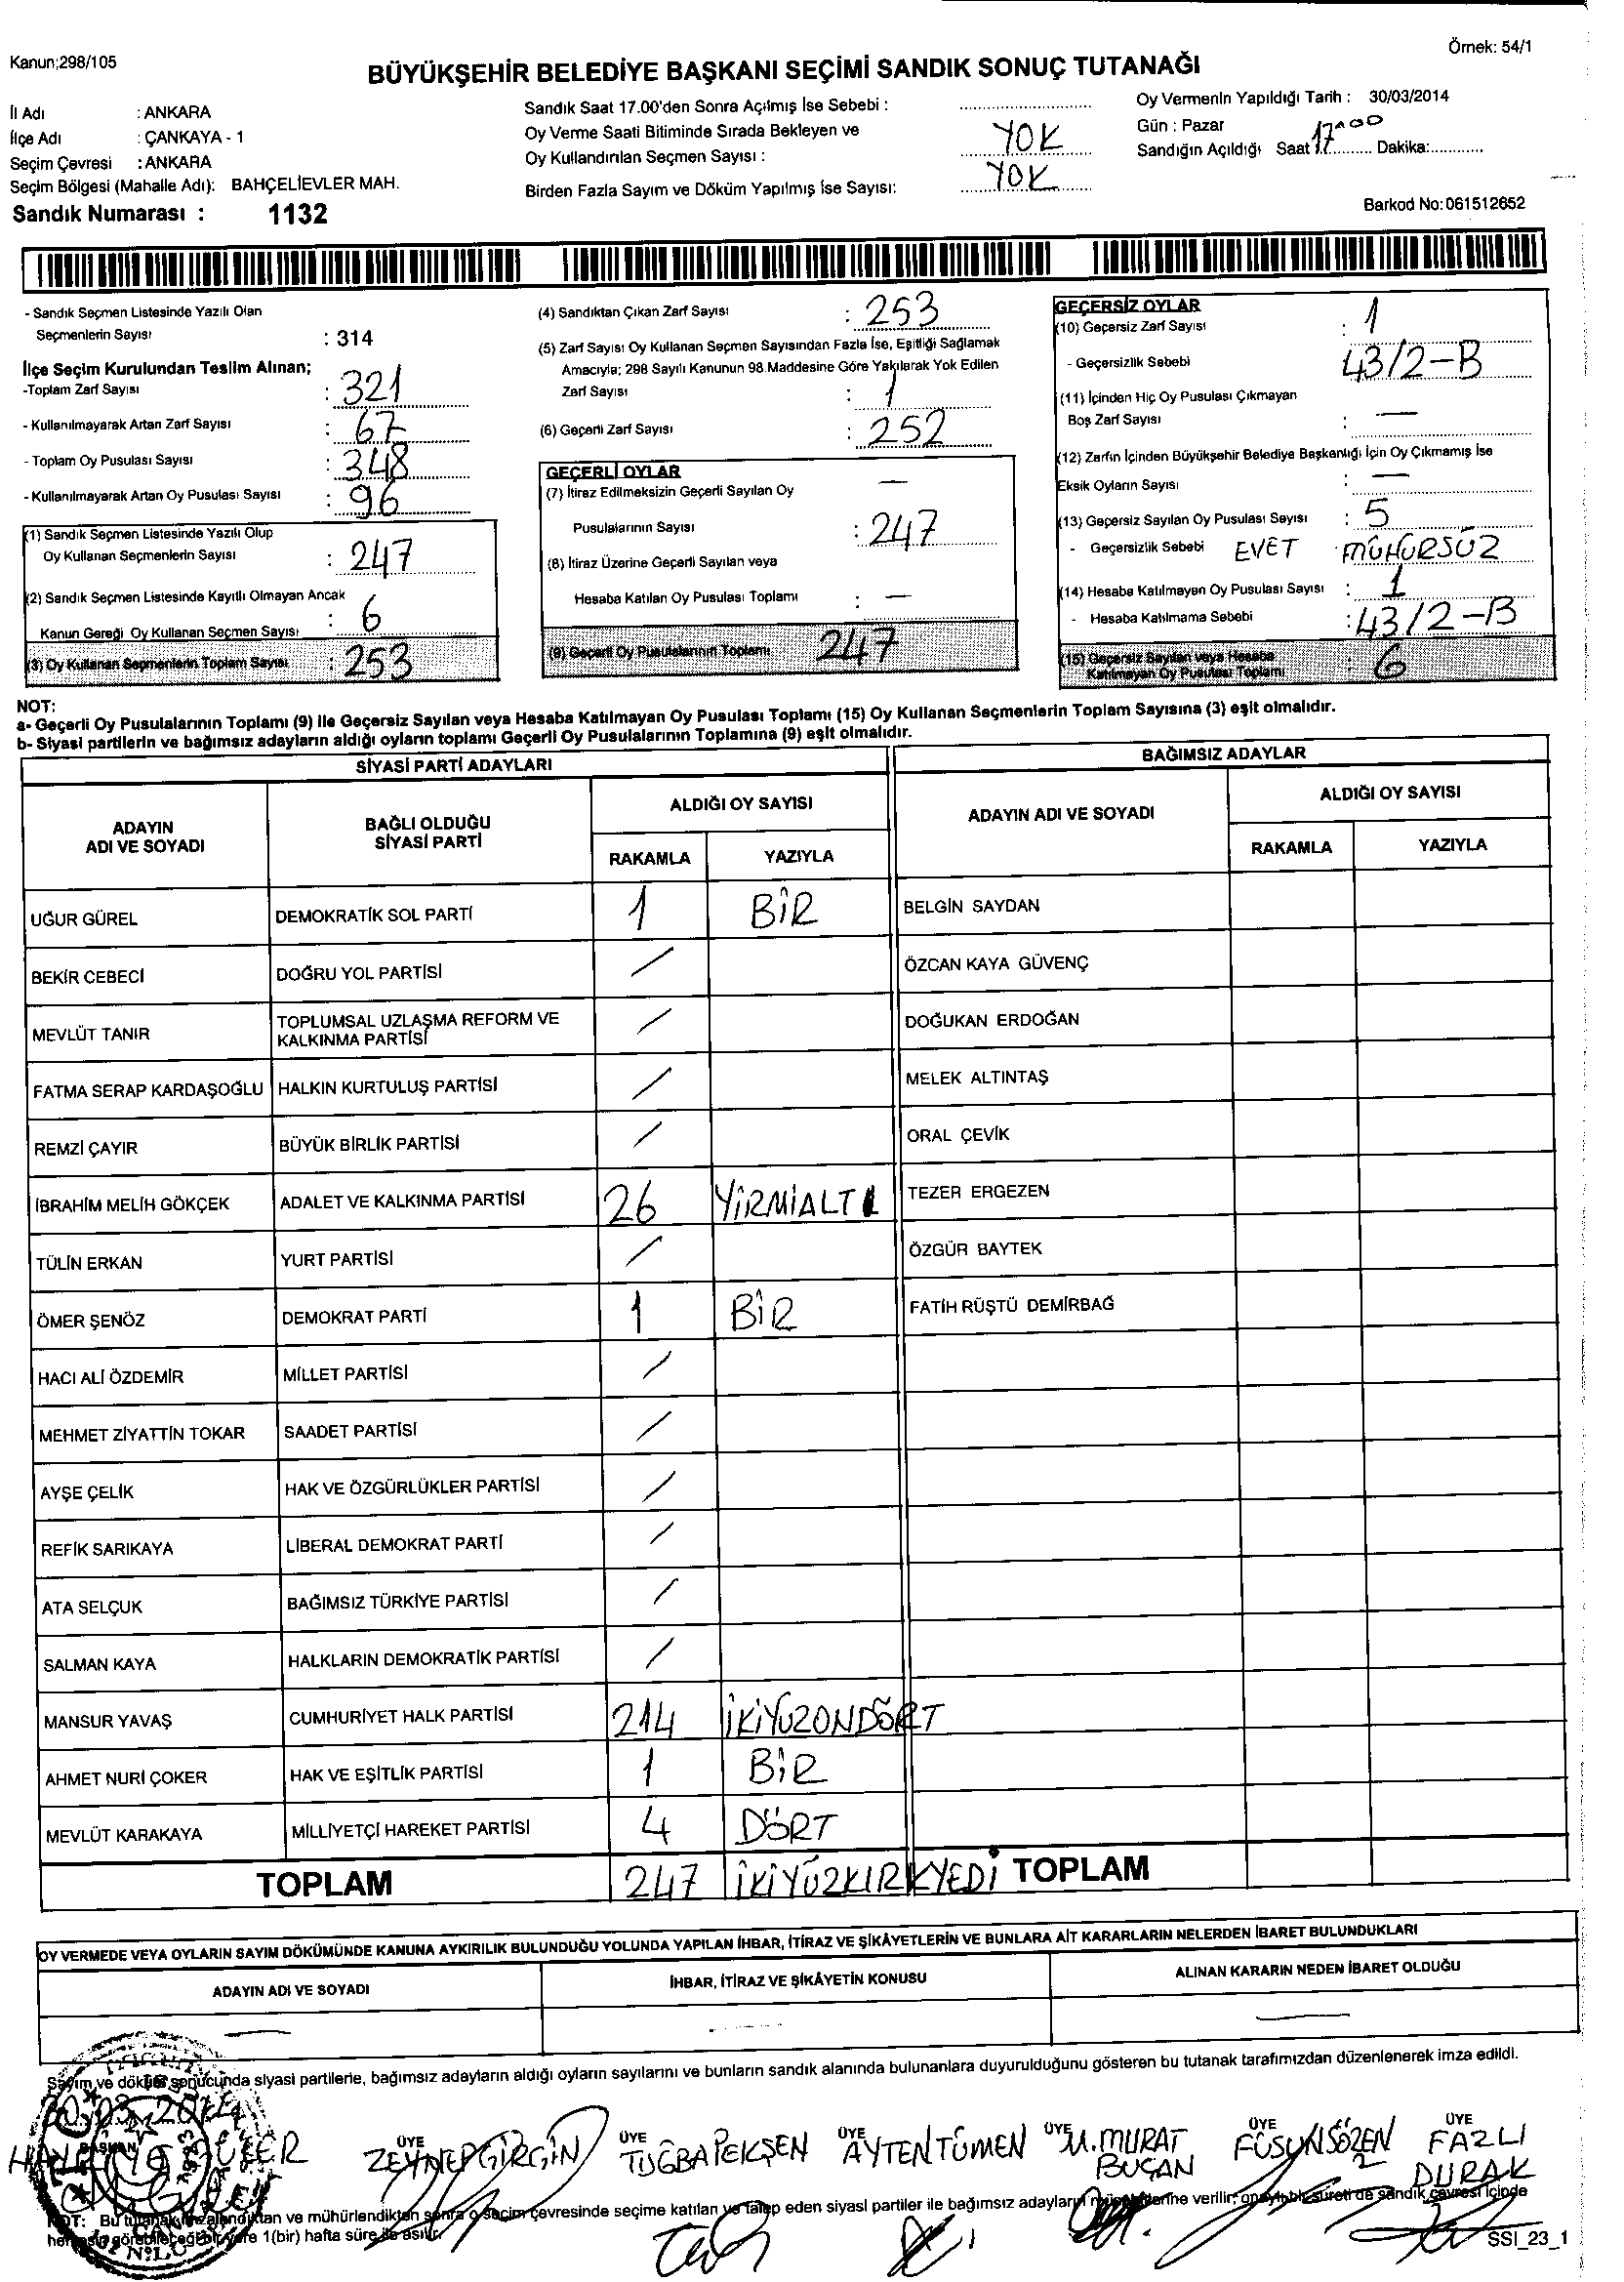 Kanun;298/105
Örnek: 54/1
BÜYÜKŞEHİR BELEDİYE BAŞKANI SEÇİMİ SANDIK SONUÇ TUTANAĞI
İl Adı : ANKARA
İlçe Adı : ÇANKAYA - 1
Seçim Çevresi : ANKARA
Seçim Bölgesi (Mahalle Adı): BAHÇELİEVLER MAH.
Sandık Numarası : 1132
Sandık Saat 17.00'den Sonra Açılmış İse Sebebi :
Oy Verme Saati Bitiminde Sırada Bekleyen ve
Oy Kullandırılan Seçmen Sayısı : YOK
Birden Fazla Sayım ve Döküm Yapılmış İse Sayısı: YOK
Oy Vermenin Yapıldığı Tarih : 30/03/2014
Gün : Pazar
Sandığın Açıldığı Saat 17 Dakika:
Barkod No: 061512652
- Sandık Seçmen Listesinde Yazılı Olan
Seçmenlerin Sayısı : 314
İlçe Seçim Kurulundan Teslim Alınan;
-Toplam Zarf Sayısı : 321
- Kullanılmayarak Artan Zarf Sayısı : 67
- Toplam Oy Pusulası Sayısı : 348
- Kullanılmayarak Artan Oy Pusulası Sayısı : 96
(1) Sandık Seçmen Listesinde Yazılı Olup
Oy Kullanan Seçmenlerin Sayısı : 247
(2) Sandık Seçmen Listesinde Kayıtlı Olmayan Ancak
Kanun Gereği Oy Kullanan Seçmen Sayısı : 6
(3) Oy Kullanan Seçmenlerin Toplam Sayısı : 253
(4) Sandıktan Çıkan Zarf Sayısı : 253
(5) Zarf Sayısı Oy Kullanan Seçmen Sayısından Fazla İse, Eşitliği Sağlamak
Amacıyla; 298 Sayılı Kanunun 98.Maddesine Göre Yakılarak Yok Edilen
Zarf Sayısı : 1
(6) Geçerli Zarf Sayısı : 252
GEÇERLİ OYLAR
(7) İtiraz Edilmeksizin Geçerli Sayılan Oy —
Pusulalarının Sayısı : 247
(8) İtiraz Üzerine Geçerli Sayılan veya
Hesaba Katılan Oy Pusulası Toplamı : —
(9) Geçerli Oy Pusulalarının Toplamı 247
GEÇERSİZ OYLAR
(10) Geçersiz Zarf Sayısı : 1
- Geçersizlik Sebebi 43/2-B
(11) İçinden Hiç Oy Pusulası Çıkmayan
Boş Zarf Sayısı : —
(12) Zarfın İçinden Büyükşehir Belediye Başkanlığı İçin Oy Çıkmamış İse
Eksik Oyların Sayısı : —
(13) Geçersiz Sayılan Oy Pusulası Sayısı : 5
- Geçersizlik Sebebi EVET MÜHÜRSÜZ
(14) Hesaba Katılmayan Oy Pusulası Sayısı : 1
- Hesaba Katılmama Sebebi : 43/2-B
(15) Geçersiz Sayılan veya Hesaba
Katılmayan Oy Pusulası Toplamı : 6
NOT:
a- Geçerli Oy Pusulalarının Toplamı (9) ile Geçersiz Sayılan veya Hesaba Katılmayan Oy Pusulası Toplamı (15) Oy Kullanan Seçmenlerin Toplam Sayısına (3) eşit olmalıdır.
b- Siyasi partilerin ve bağımsız adayların aldığı oyların toplamı Geçerli Oy Pusulalarının Toplamına (9) eşit olmalıdır.
SİYASİ PARTİ ADAYLARI
BAĞIMSIZ ADAYLAR
ADAYIN ADI VE SOYADI
BAĞLI OLDUĞU SİYASİ PARTİ
ALDIĞI OY SAYISI
RAKAMLA YAZIYLA
ADAYIN ADI VE SOYADI
ALDIĞI OY SAYISI
RAKAMLA YAZIYLA
UĞUR GÜREL DEMOKRATİK SOL PARTİ 1 BİR BELGİN SAYDAN
BEKİR CEBECİ DOĞRU YOL PARTİSİ / ÖZCAN KAYA GÜVENÇ
MEVLÜT TANIR TOPLUMSAL UZLAŞMA REFORM VE KALKINMA PARTİSİ / DOĞUKAN ERDOĞAN
FATMA SERAP KARDAŞOĞLU HALKIN KURTULUŞ PARTİSİ / MELEK ALTINTAŞ
REMZİ ÇAYIR BÜYÜK BİRLİK PARTİSİ / ORAL ÇEVİK
İBRAHİM MELİH GÖKÇEK ADALET VE KALKINMA PARTİSİ 26 YİRMİALTI TEZER ERGEZEN
TÜLİN ERKAN YURT PARTİSİ / ÖZGÜR BAYTEK
ÖMER ŞENÖZ DEMOKRAT PARTİ 1 BİR FATİH RÜŞTÜ DEMİRBAĞ
HACI ALİ ÖZDEMİR MİLLET PARTİSİ /
MEHMET ZİYATTİN TOKAR SAADET PARTİSİ /
AYŞE ÇELİK HAK VE ÖZGÜRLÜKLER PARTİSİ /
REFİK SARIKAYA LİBERAL DEMOKRAT PARTİ /
ATA SELÇUK BAĞIMSIZ TÜRKİYE PARTİSİ /
SALMAN KAYA HALKLARIN DEMOKRATİK PARTİSİ /
MANSUR YAVAŞ CUMHURİYET HALK PARTİSİ 214 İKİYÜZONDÖRT
AHMET NURİ ÇOKER HAK VE EŞİTLİK PARTİSİ 1 BİR
MEVLÜT KARAKAYA MİLLİYETÇİ HAREKET PARTİSİ 4 DÖRT
TOPLAM 247 İKİYÜZKIRKYEDİ TOPLAM
OY VERMEDE VEYA OYLARIN SAYIM DÖKÜMÜNDE KANUNA AYKIRILIK BULUNDUĞU YOLUNDA YAPILAN İHBAR, İTİRAZ VE ŞİKÂYETLERİN VE BUNLARA AİT KARARLARIN NELERDEN İBARET BULUNDUKLARI
ADAYIN ADI VE SOYADI İHBAR, İTİRAZ VE ŞİKÂYETİN KONUSU ALINAN KARARIN NEDEN İBARET OLDUĞU
Sayım ve döküm sonucunda siyasi partilerle, bağımsız adayların aldığı oyların sayılarını ve bunların sandık alanında bulunanlara duyurulduğunu gösteren bu tutanak tarafımızdan düzenlenerek imza edildi.
30.03.2014
BAŞKAN ÜYE ÜYE ÜYE ÜYE ÜYE ÜYE
ZEYNEP GİRGİN TUĞBA PEKŞEN AYTEN TÜMEN M. MURAT BUÇAN FÜSUN SÖZEN FAZLI DURAK
NOT: Bu tutanak imzalandıktan ve mühürlendikten sonra o seçim çevresinde seçime katılan ve talep eden siyasi partiler ile bağımsız adayların müşahitlerine verilir, onaylı bir sureti de sandık çevresi içinde
herkesin görebileceği bir yere 1(bir) hafta süre ile asılır.
SSI_23_1